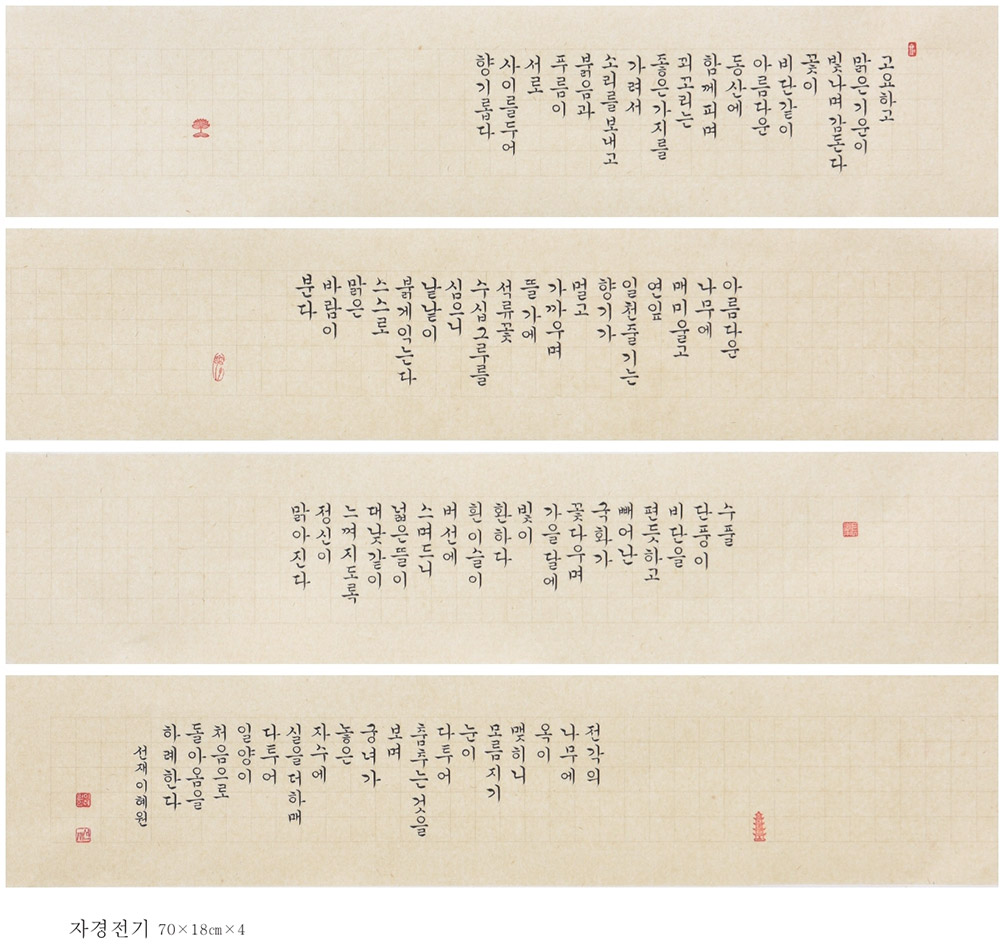 고요하고
맑은기운이
빛나며감돈다
꽃이
비단같이
아름다운
동산에
함께피며
꾀꼬리는
좋은가지를
가려서
소리를보내고
붉음과
푸름이
서로
사이를두어
향기롭다
아름다운
나무에
매미울고
연잎
일천줄기는
향기가
멀고
가까우며
뜰가에
석류꽃
수십그루를
심으니
낱낱이
붉게익는다
스스로
맑은
바람이
분다
수풀
단풍이
비단을
편듯하고
빼어난
국화가
꽃다우며
가을달에
빛이
환하다
흰이슬이
버선에
스며드니
넓은뜰이
대낮같이
느껴지도록
정신이
맑아진다
전각의
나무에
옥이
맺히니
모름지기
눈이
다투어
춤추는것을
보며
궁녀가
놓은
자수에
실을더하매
다투어
일양이
처음으로
돌아옴을
하례한다
선재이혜원
자경전기 70×18㎝×4